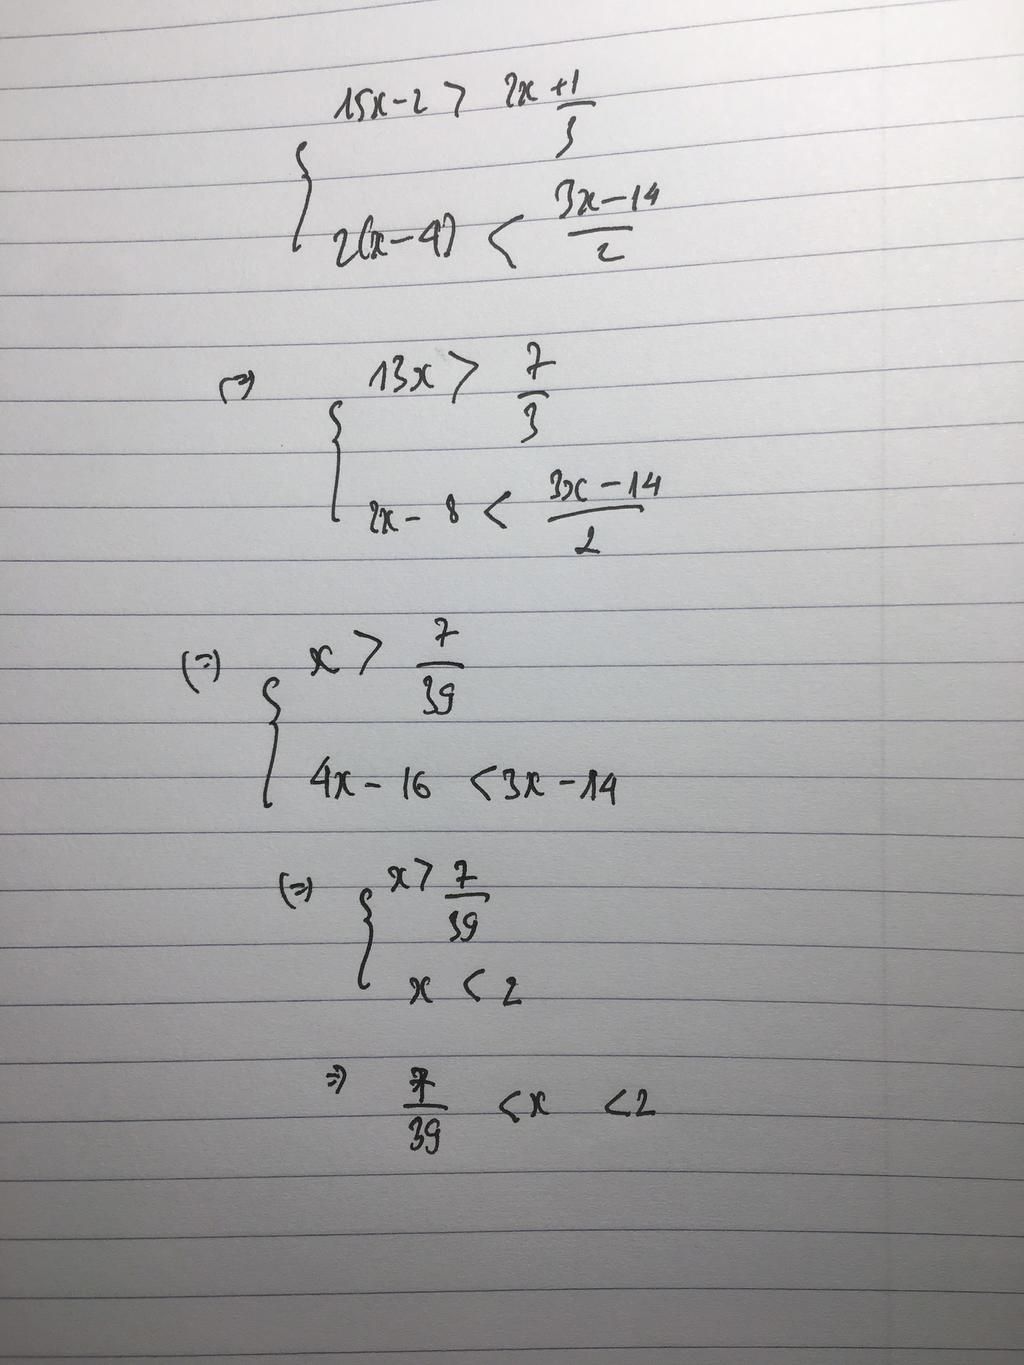 { 15x-2 > 2x + 1/3
2(x-4) < (3x-14)/2
(=) { 13x > 7/3
2x - 8 < (3x - 14)/2
(=) { x > 7/39
4x - 16 < 3x - 14
(=) { x > 7/39
x < 2
=> 7/39 < x < 2